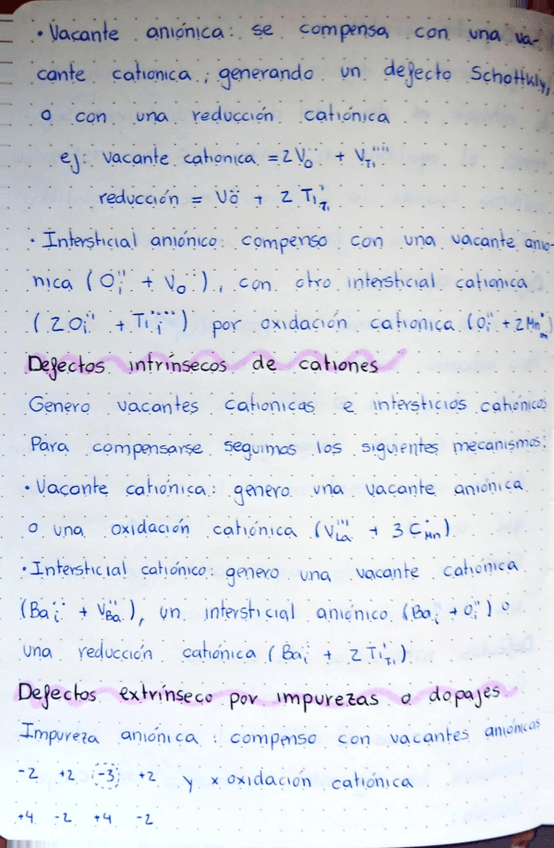 · Vacante aniónica: se compensa con una va-
cante cationica, generando un defecto Schottkly,
o con una reducción catiónica
ej: vacante cationica = 2Vö + V_Ti''''
reducción = Vö + 2 Ti'_Ti
· Intersticial aniónico: compenso con una vacante anio-
nica (O_i'' + V_o¨), con otro intersticial cationica
(2O_i'' + Ti_i····) por oxidación cationica (O_i'' + 2Mn˙_Mn)
Defectos intrínsecos de cationes
Genero vacantes cationicas e intersticios catiónicos
Para compensarse seguimos los siguientes mecanismos:
· Vacante catiónica: genero una vacante aniónica
o una oxidación catiónica (V_La''' + 3 C˙_Mn)
· Intersticial catiónico: genero una vacante catiónica
(Ba_i¨ + V_Ba''), un intersticial aniónico (Ba_i¨ + O_i'') o
una reducción catiónica (Ba_i¨ + 2 Ti'_Ti)
Defectos extrínseco por impurezas o dopajes
Impureza aniónica: compenso con vacantes aniónicas
-2 +2 (-3) +2 y x oxidación catiónica
+4 -2 +4 -2